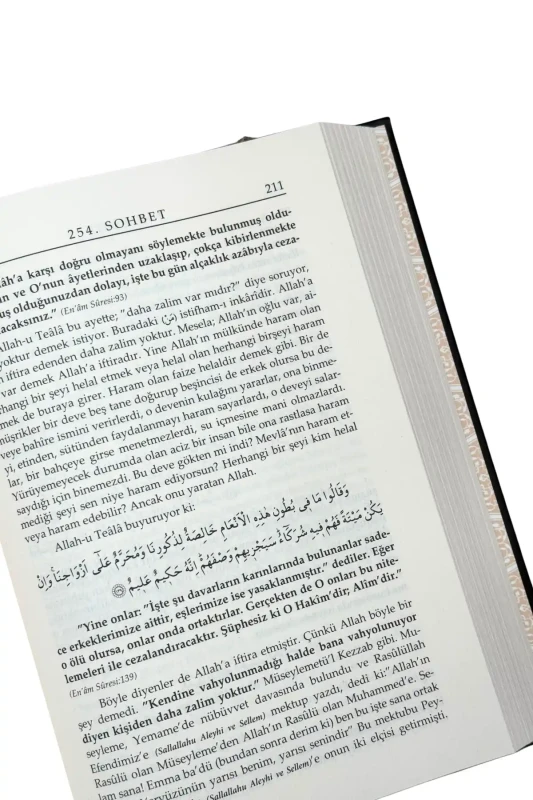 211
254. SOHBET
lâh'a karşı doğru olmayanı söylemekte bulunmuş oldu-
ın ve O'nun âyetlerinden uzaklaşıp, çokça kibirlenmekte
uş olduğunuzdan dolayı, işte bu gün alçaklık azâbıyla ceza-
acaksınız." (En'âm Sûresi:93)
Allah-u Teâlâ bu ayette; "daha zalim var mıdır?" diye soruyor,
yoktur demek istiyor. Buradaki (مَنْ) istifham-ı inkârîdir. Allah'a
n iftira edenden daha zalim yoktur. Mesela; Allah'ın oğlu var, ai-
var demek Allah'a iftiradır. Yine Allah'ın mülkünde haram olan
rhangi bir şeyi helal etmek veya helal olan herhangi birşeyi haram
mek de buraya girer. Haram olan faize helaldir demek gibi. Bir de
nüşrikler bir deve beş tane doğurup beşincisi de erkek olursa bu de-
veye bahire ismini verirlerdi, o devenin kulağını yararlar, ona binme-
yi, etinden, sütünden faydalanmayı haram sayarlardı, o deveyi salar-
lar, bir bahçeye girse menetmezlerdi, su içmesine mani olmazlardı.
Yürüyemeyecek durumda olan aciz bir insan bile ona rastlasa haram
saydığı için binemezdi. Bu deve gökten mi indi? Mevlâ'nın haram et-
mediği şeyi sen niye haram ediyorsun? Herhangi bir şeyi kim helal
veya haram edebilir? Ancak onu yaratan Allah.
Allah-u Teâlâ buyuruyor ki:
وَقَالُوا مَا فِى بُطُونِ هٰذِهِ الْاَنْعَامِ خَالِصَةٌ لِذُكُورِنَا وَمُحَرَّمٌ عَلٰٓى اَزْوَاجِنَا وَاِنْ
يَكُنْ مَيْتَةً فَهُمْ فِيهِ شُرَكَٓاءُ سَيَجْزِيهِمْ وَصْفَهُمْ اِنَّهُ حَكِيمٌ عَلِيمٌ
"Yine onlar: "İşte şu davarların karınlarında bulunanlar sade-
ce erkeklerimize aittir, eşlerimize ise yasaklanmıştır." dediler. Eğer
o ölü olursa, onlar onda ortaktırlar. Gerçekten de O onları bu nite-
lemeleri ile cezalandıracaktır. Şüphesiz ki O Hakîm'dir; Alîm'dir."
(En'âm Sûresi:139)
Böyle diyenler de Allah'a iftira etmiştir. Çünkü Allah böyle bir
şey demedi. "Kendine vahyolunmadığı halde bana vahyolunuyor
diyen kişiden daha zalim yoktur." Müseylemetü'l Kezzab gibi. Mu-
seyleme, Yemame'de nübüvvet davasında bulundu ve Rasûlüllah
Efendimiz'e (Sallallahu Aleyhi ve Sellem) mektup yazdı, dedi ki:"Allah'ın
Rasûlü olan Müseyleme'den Allah'ın Rasûlü olan Muhammed'e. Se-
lam sana! Emma ba'dü (bundan sonra derim ki) ben bu işte sana ortak
Yeryüzünün yarısı benim, yarısı senindir" Bu mektubu Pey-
(Sallallahu Aleyhi ve Sellem)'e onun iki elçisi getirmişti.